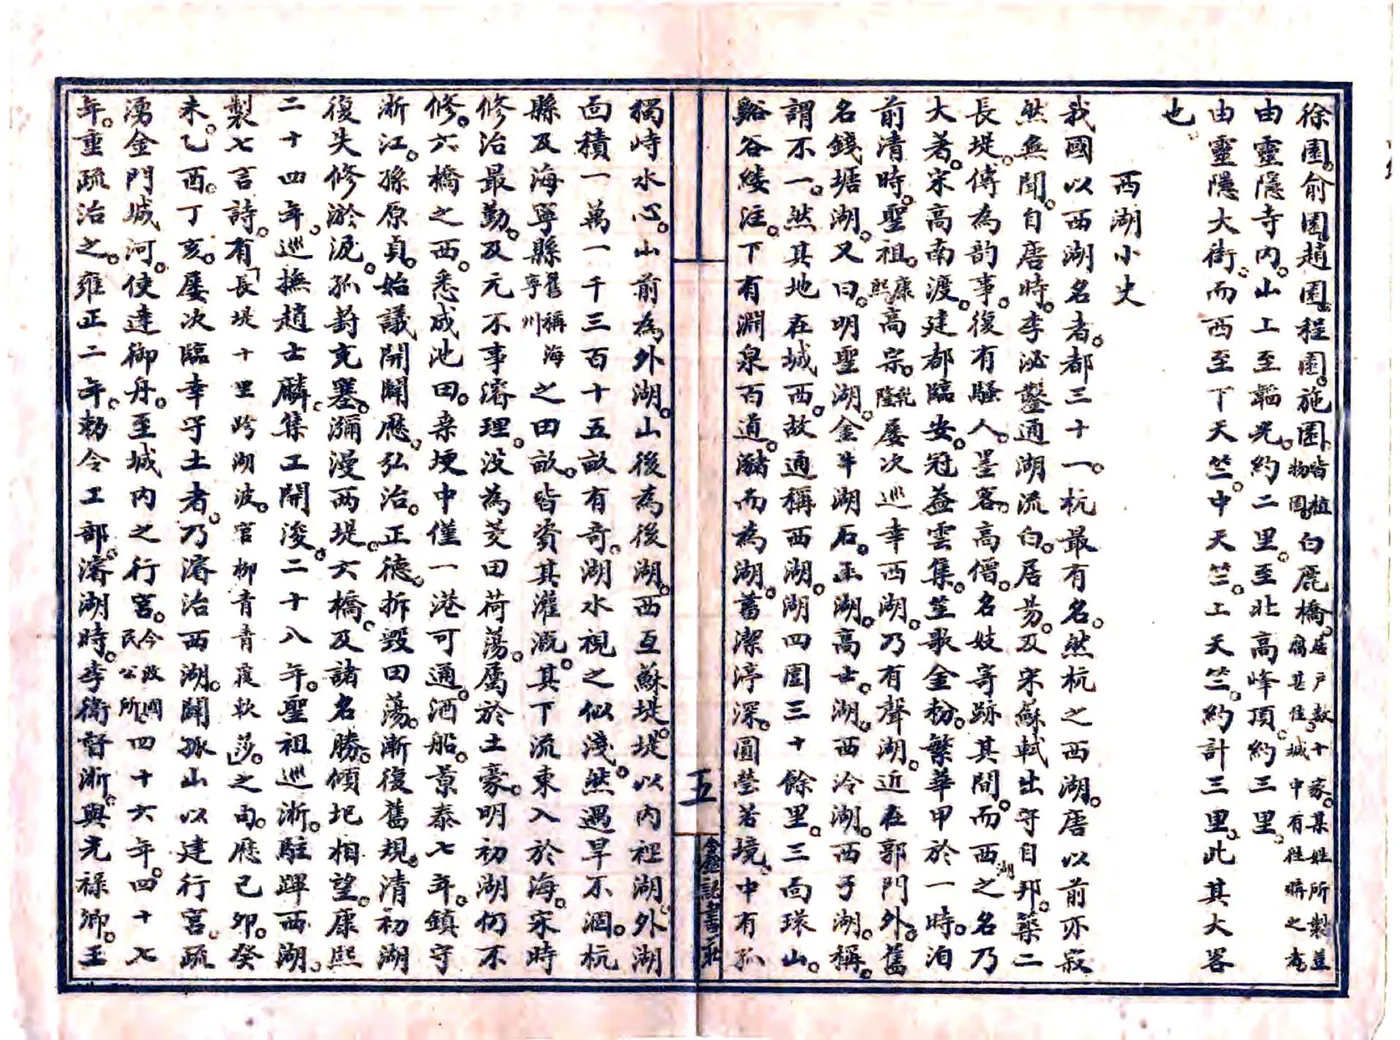 徐園。俞園。趙園。程園。施園。皆植物園。白鹿橋。居戶數十家。某姓所製豆腐甚佳。城中有往購之者。
由靈隱寺內。山上至韜光。約二里。至北高峰頂。約三里。
由靈隱大街。而西至下天竺。中天竺。上天竺。約計三里。此其大畧
也。
西湖小史
我國以西湖名者。都三十一。杭最有名。然杭之西湖。唐以前亦寂
然無聞。自唐時。李泌鑿通湖流。白居易。及宋蘇軾出守自邦。築二
長堤。傳為韵事。復有騷人。墨客。高僧。名妓寄跡其間。而西湖之名乃
大著。宋高南渡。建都臨安。冠蓋雲集。笙歌金粉。繁華甲於一時。洎
前清時。聖祖。康熙高宗。乾隆屢次巡幸西湖。乃有聲湖。近在郭門外。舊
名錢塘湖。又曰。明聖湖。金牛湖。石函湖。高士湖。西泠湖。西子湖。稱
謂不一。然其地在城西。故通稱西湖。湖四圍三十餘里。三面環山。
谿谷縷注。下有淵泉百道。瀦而為湖。蓄潔渟深。圓瑩若境。中有孤
五
獨峙水心。山前為外湖。山後為後湖。西亙蘇堤。堤以內裡湖。外湖
面積一萬一千三百十五畝有奇。湖水視之似淺。然遇旱不涸。杭
縣及海寧縣舊稱海寧州之田畝。皆資其灌溉。其下流東入於海。宋時
修治最勤。及元不事濬理。没為茭田荷蕩。屬於土豪。明初湖仍不
修。六橋之西。悉成池田。桑埂中僅一港可通。酒船。景泰七年。鎮守
浙江。孫原貞。始議開闢。歷。弘治。正德。拆毀田蕩。漸復舊規。清初湖
復失修淤泥。孤葑充塞。瀰漫兩堤。六橋。及諸名勝。傾圯相望。康熙
二十四年。巡撫趙士麟。集工開浚。二十八年。聖祖巡浙。駐蹕西湖。
製七言詩。有「長堤十里跨湖波。官柳青青覆軟莎。」之句。歷己卯。癸
未。乙酉。丁亥。屢次臨幸守土者。乃濬治西湖。闢孤山以建行宮。疏
湧金門城河。使達御舟。至城內之行宮。今改國民公所四十六年。四十七
年。重疏治之。雍正二年。勅令工部。濬湖時。李衛督浙。與光祿卿。王